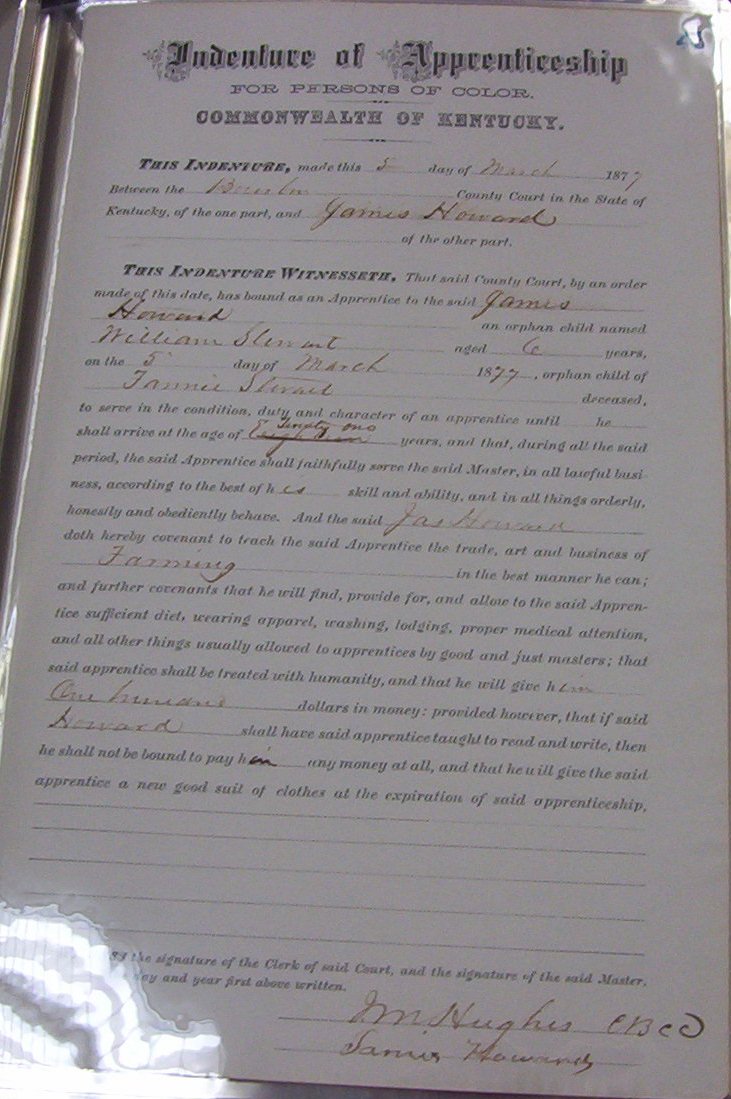 Indenture of Apprenticeship
FOR PERSONS OF COLOR.
COMMONWEALTH OF KENTUCKY.
THIS INDENTURE, made this 5 day of March 1877
Between the Bourbon County Court in the State of
Kentucky, of the one part, and James Howard
of the other part.
THIS INDENTURE WITNESSETH, That said County Court, by an order
made of this date, has bound as an Apprentice to the said James
Howard an orphan child named
William Stewart aged 6 years,
on the 5 day of March 1877, orphan child of
Fannie Stewart deceased,
to serve in the condition, duty and character of an apprentice until he
shall arrive at the age of Eighteen Twenty one years, and that, during all the said
period, the said Apprentice shall faithfully serve the said Master, in all lawful busi-
ness, according to the best of his skill and ability, and in all things orderly,
honestly and obediently behave. And the said Jas Howard
doth hereby covenant to teach the said Apprentice the trade, art and business of
Farming in the best manner he can;
and further covenants that he will find, provide for, and allow to the said Appren-
tice sufficient diet, wearing apparel, washing, lodging, proper medical attention,
and all other things usually allowed to apprentices by good and just masters; that
said apprentice shall be treated with humanity, and that he will give him
One hundred dollars in money: provided however, that if said
Howard shall have said apprentice taught to read and write, then
he shall not be bound to pay him any money at all, and that he will give the said
apprentice a new good suit of clothes at the expiration of said apprenticeship,
the signature of the Clerk of said Court, and the signature of the said Master,
day and year first above written.
JM Hughes CBCC
James Howard